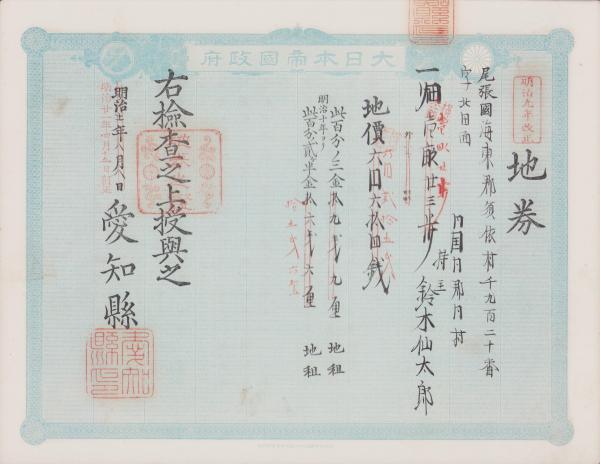 大日本帝國政府
明治九年改正
地券
尾張國海東郡須依村千九百二十番
字北田面
同國同郡同村
持主 鈴木仙太郎
一畑
廿三歩
地價六円六拾四錢
此百分ノ三金拾九戔九厘 地租
明治十年ヨリ
此百分ノ貳半金拾六戔六厘 地租
右檢査之上授與之
明治十二年八月八日
愛知縣
愛知縣印